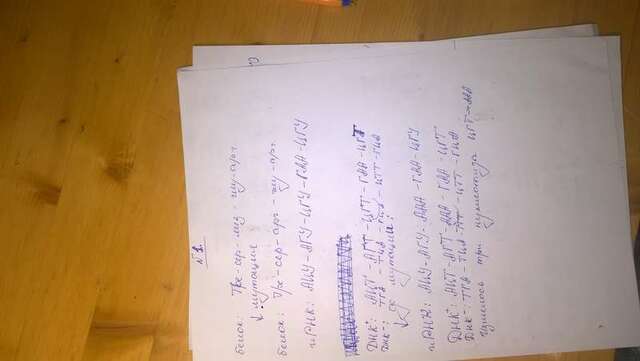 №1.
белок: Тре-сер-лиз-глу-арг
↓ мутация
белок: Тре-сер-арг-глу-арг
иРНК: АЦУ-АГУ-ЦГУ-ГАА-ЦГУ
ДНК: АЦТ-АГТ-ЦГТ-ГАА-ЦГТ
ДНК-: ТГА-ТЦА-ГЦА-ЦТТ-ГЦА
↓ до мутации:
иРНК: АЦУ-АГУ-ААА-ГАА-ЦГУ
ДНК: АЦТ-АГТ-ААА-ГАА-ЦГТ
ДНК-: ТГА-ТЦА ЦТТ-ГЦА
три нуклеотида ЦГТ ААА